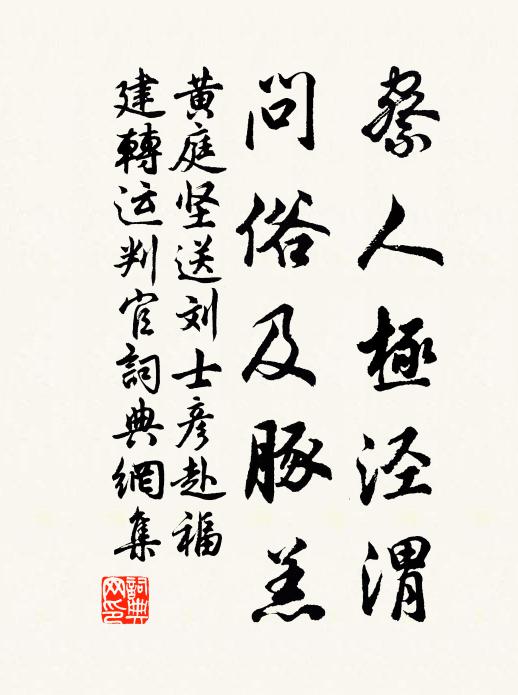 察人極涇渭
問俗及豚羔
黄庭坚送刘士彦赴福
建轉运判官詞典網集
詞典
网印